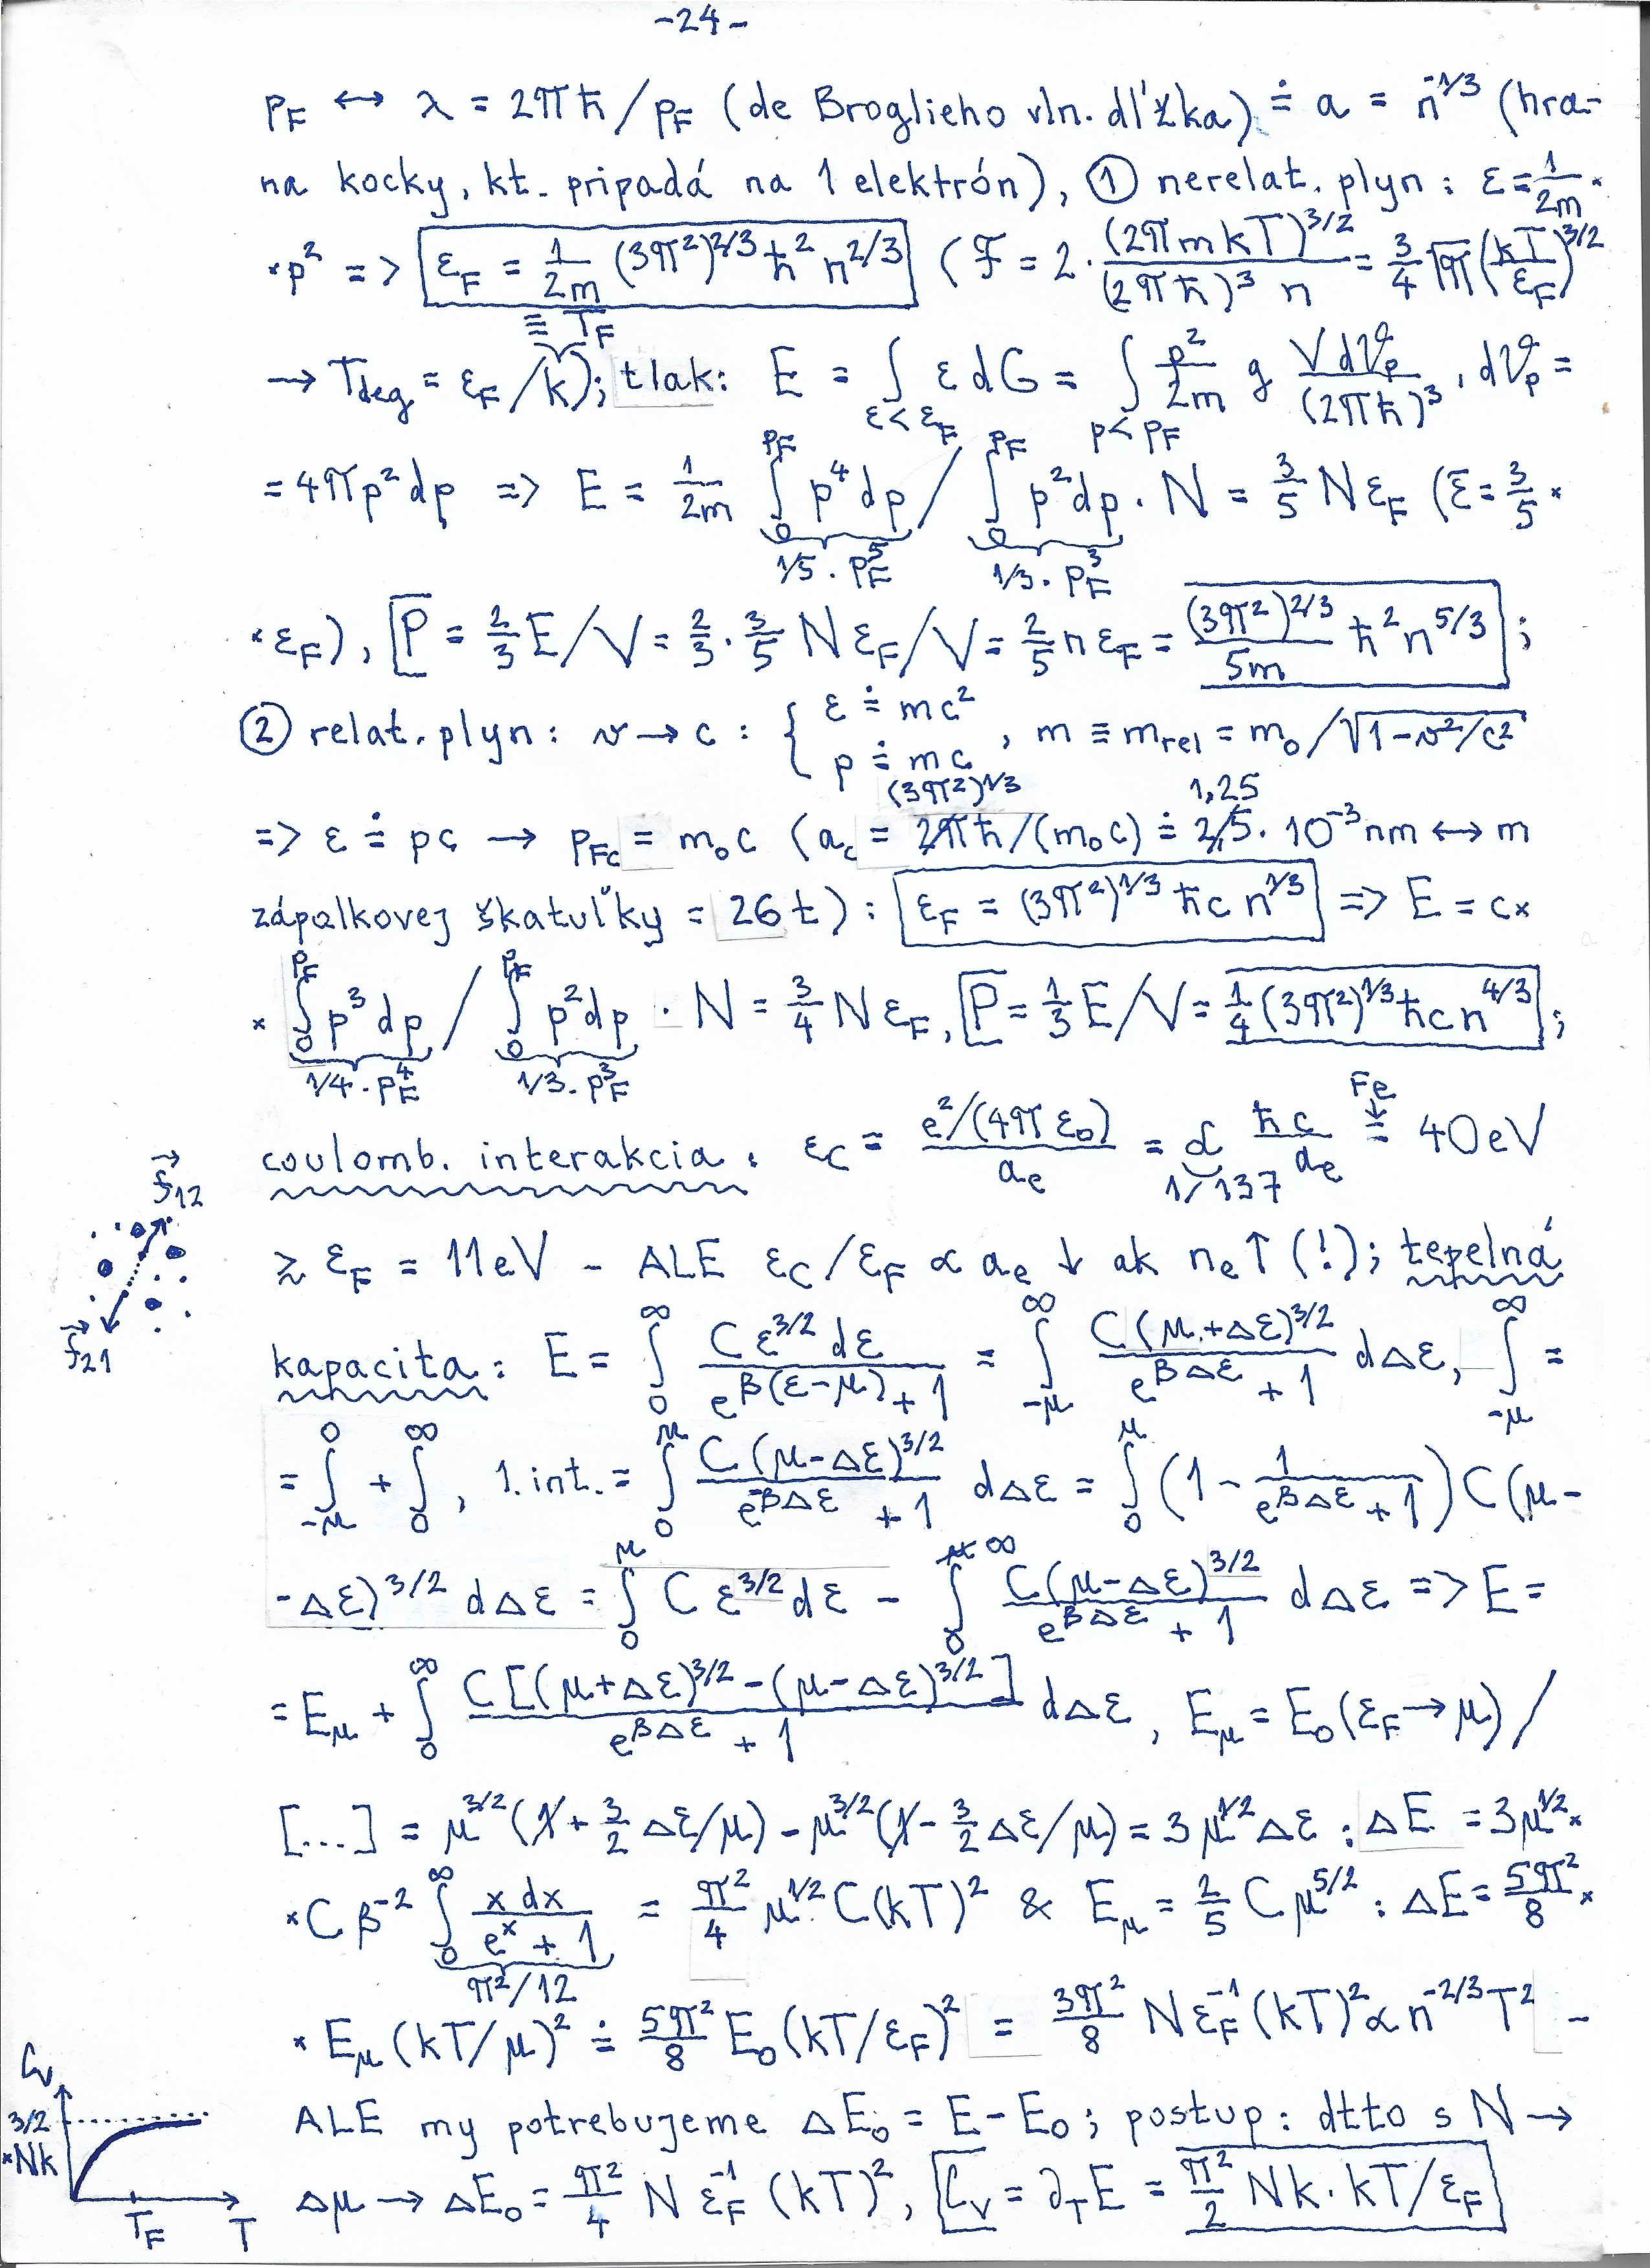 -24-
p_F ↔ λ = 2πħ/p_F (de Broglieho vln. dĺžka) ≐ a = n^{-1/3} (hra-
na kocky, kt. pripadá na 1 elektrón), ① nerelat. plyn: ε = 1/2m ×
× p² => ε_F = 1/2m (3π²)^{2/3} ħ² n^{2/3} (F = 2 · (2πmkT)^{3/2} / (2πħ)³ n = 3/4 √π (kT/ε_F)^{3/2}
→ T_deg = ε_F/k ≡ T_F); tlak: E = ∫_{ε<ε_F} ε dG = ∫_{p<p_F} p²/2m g V dV_p/(2πħ)³, dV_p =
= 4πp²dp => E = 1/2m ∫_0^{p_F} p⁴dp / ∫_0^{p_F} p²dp · N = 3/5 N ε_F (ε̄ = 3/5 ×
1/5 · p_F⁵ 1/3 · p_F³
× ε_F), P = 2/3 E/V = 2/3 · 3/5 N ε_F/V = 2/5 n ε_F = (3π²)^{2/3}/5m ħ² n^{5/3};
② relat. plyn: v → c: { ε ≐ mc² p ≐ mc , m ≡ m_rel = m_0/√1-v²/c²
=> ε ≐ pc → p_Fc = m_0c (a_c = (3π²)^{1/3} ħ/(m_0c) ≐ 1,25 · 10^{-3} nm ↔ m
zápalkovej škatuľky = 26 t): ε_F = (3π²)^{1/3} ħc n^{1/3} => E = c ×
× ∫_0^{p_F} p³dp / ∫_0^{p_F} p²dp · N = 3/4 N ε_F, P = 1/3 E/V = 1/4 (3π²)^{1/3} ħc n^{4/3};
1/4 · p_F⁴ 1/3 · p_F³
coulomb. interakcia: ε_C = e²/(4πε_0) / a_e = α ħc/a_e ≐ 40 eV
1/137 Fe
f_12
≳ ε_F = 11 eV - ALE ε_C/ε_F ∝ a_e ↓ ak n_e ↑ (!); tepelná
f_21
kapacita: E = ∫_0^∞ C ε^{3/2} dε / e^{β(ε-μ)} + 1 = ∫_{-μ}^∞ C(μ+Δε)^{3/2} / e^{βΔε} + 1 dΔε, ∫_{-μ}^∞ =
= ∫_{-μ}^0 + ∫_0^∞, 1. int. = ∫_0^μ C(μ-Δε)^{3/2} / e^{-βΔε} + 1 dΔε = ∫_0^μ (1 - 1/e^{βΔε} + 1) C(μ-
-Δε)^{3/2} dΔε = ∫_0^μ C ε^{3/2} dε - ∫_0^∞ C(μ-Δε)^{3/2} / e^{βΔε} + 1 dΔε => E =
= E_μ + ∫_0^∞ C[(μ+Δε)^{3/2} - (μ-Δε)^{3/2}] / e^{βΔε} + 1 dΔε, E_μ = E_0(ε_F → μ) /
[...] = μ^{3/2}(1 + 3/2 Δε/μ) - μ^{3/2}(1 - 3/2 Δε/μ) = 3μ^{1/2}Δε : ΔE = 3μ^{1/2} ×
× C β^{-2} ∫_0^∞ x dx / e^x + 1 = π²/4 μ^{1/2} C(kT)² & E_μ = 2/5 C μ^{5/2} : ΔE = 5π²/8 ×
π²/12
× E_μ(kT/μ)² ≐ 5π²/8 E_0(kT/ε_F)² = 3π²/8 N ε_F^{-1} (kT)² ∝ n^{-2/3} T² -
ALE my potrebujeme ΔE_0 = E - E_0; postup: dtto s N →
Δμ → ΔE_0 = π²/4 N ε_F^{-1} (kT)², C_V = ∂_T E = π²/2 Nk · kT/ε_F
C_V
3/2
×Nk
T_F T